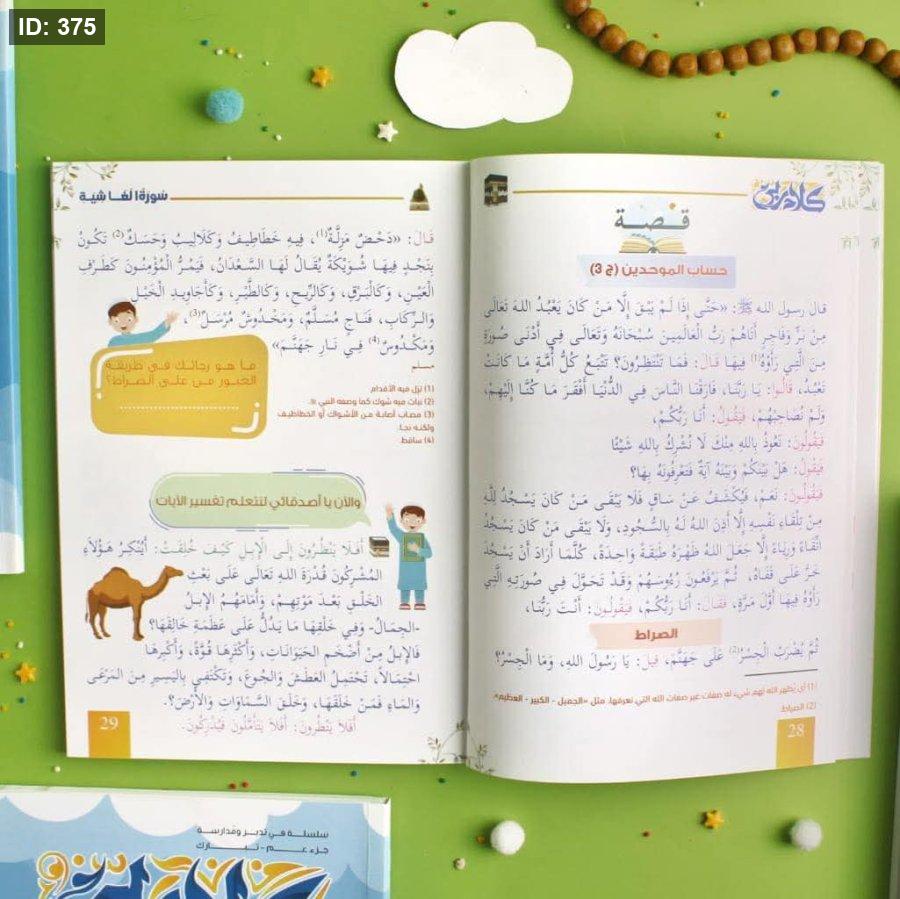 ID: 375
كلام ربي
قصة
حساب الموحدين (ج 3)
قال رسول الله ﷺ: «حَتَّى إِذَا لَمْ يَبْقَ إِلَّا مَنْ كَانَ يَعْبُدُ اللهَ تَعَالَى
مِنْ بَرٍّ وَفَاجِرٍ أَتَاهُمْ رَبُّ الْعَالَمِينَ سُبْحَانَهُ وَتَعَالَى فِي أَدْنَى صُورَةٍ
مِنَ الَّتِي رَأَوْهُ(1) فِيهَا قَالَ: فَمَا تَنْتَظِرُونَ؟ تَتْبَعُ كُلُّ أُمَّةٍ مَا كَانَتْ
تَعْبُدُ، قَالُوا: يَا رَبَّنَا، فَارَقْنَا النَّاسَ فِي الدُّنْيَا أَفْقَرَ مَا كُنَّا إِلَيْهِمْ،
وَلَمْ نُصَاحِبْهُمْ، فَيَقُولُ: أَنَا رَبُّكُمْ،
فَيَقُولُونَ: نَعُوذُ بِاللهِ مِنْكَ لَا نُشْرِكُ بِاللهِ شَيْئًا
فَيَقُولُ: هَلْ بَيْنَكُمْ وَبَيْنَهُ آيَةٌ فَتَعْرِفُونَهُ بِهَا؟
فَيَقُولُونَ: نَعَمْ، فَيُكْشَفُ عَنْ سَاقٍ فَلَا يَبْقَى مَنْ كَانَ يَسْجُدُ لِلَّهِ
مِنْ تِلْقَاءِ نَفْسِهِ إِلَّا أَذِنَ اللهُ لَهُ بِالسُّجُودِ، وَلَا يَبْقَى مَنْ كَانَ يَسْجُدُ
اتِّقَاءً وَرِيَاءً إِلَّا جَعَلَ اللهُ ظَهْرَهُ طَبَقَةً وَاحِدَةً، كُلَّمَا أَرَادَ أَنْ يَسْجُدَ
خَرَّ عَلَى قَفَاهُ، ثُمَّ يَرْفَعُونَ رُءُوسَهُمْ وَقَدْ تَحَوَّلَ فِي صُورَتِهِ الَّتِي
رَأَوْهُ فِيهَا أَوَّلَ مَرَّةٍ، فَقَالَ: أَنَا رَبُّكُمْ، فَيَقُولُونَ: أَنْتَ رَبُّنَا،
الصراط
ثُمَّ يُضْرَبُ الْجِسْرُ(2) عَلَى جَهَنَّمَ، قِيلَ: يَا رَسُولَ اللهِ، وَمَا الْجِسْرُ؟
(1) أي يُظهر الله لهم شيء له صفات غير صفات الله التي نعرفها. مثل «الجميل - الكبير - العظيم».
(2) الصراط
28
سُورَةُ الغَاشِيَة
قَالَ: «دَحْضٌ مَزِلَّةٌ(1)، فِيهِ خَطَاطِيفُ وَكَلَالِيبُ وَحَسَكٌ(2) تَكُونُ
بِنَجْدٍ فِيهَا شُوَيْكَةٌ يُقَالُ لَهَا السَّعْدَانُ، فَيَمُرُّ الْمُؤْمِنُونَ كَطَرْفِ
الْعَيْنِ، وَكَالْبَرْقِ، وَكَالرِّيحِ، وَكَالطَّيْرِ، وَكَأَجَاوِيدِ الْخَيْلِ
وَالرِّكَابِ، فَنَاجٍ مُسَلَّمٌ، وَمَخْدُوشٌ مُرْسَلٌ(3)،
وَمَكْدُوسٌ(4) فِي نَارِ جَهَنَّمَ»
مسلم
ما هو رجائك في طريقة
العبور من على الصراط؟
(1) تزل فيه الأقدام
(2) نبات فيه شوك كما وصفه النبي ﷺ.
(3) مصاب أصابة من الأشواك أو الخطاطيف
ولكنه نجا.
(4) ساقط.
والآن يا أصدقائي لنتعلم تفسير الآيات
أَفَلَا يَنْظُرُونَ إِلَى الْإِبِلِ كَيْفَ خُلِقَتْ: أَيُنْكِرُ هَؤُلَاءِ
الْمُشْرِكُونَ قُدْرَةَ اللهِ تَعَالَى عَلَى بَعْثِ
الْخَلْقِ بَعْدَ مَوْتِهِمْ، وَأَمَامَهُمُ الْإِبِلُ
-الجِمَالُ- وَفِي خَلْقِهَا مَا يَدُلُّ عَلَى عَظَمَةِ خَالِقِهَا؟
فَالإِبِلُ مِنْ أَضْخَمِ الْحَيَوَانَاتِ، وَأَكْثَرِهَا قُوَّةً، وَأَكْبَرِهَا
احْتِمَالًا، تَحْتَمِلُ الْعَطَشَ وَالْجُوعَ، وَتَكْتَفِي بِالْيَسِيرِ مِنَ الْمَرْعَى
وَالْمَاءِ فَمَنْ خَلَقَهَا، وَخَلَقَ السَّمَاوَاتِ وَالْأَرْضَ؟.
أَفَلَا يَنْظُرُونَ: أَفَلَا يَتَأَمَّلُونَ فَيُدْرِكُونَ.
29
سلسلة في تدبر ومدارسة
جزء عم - تبارك